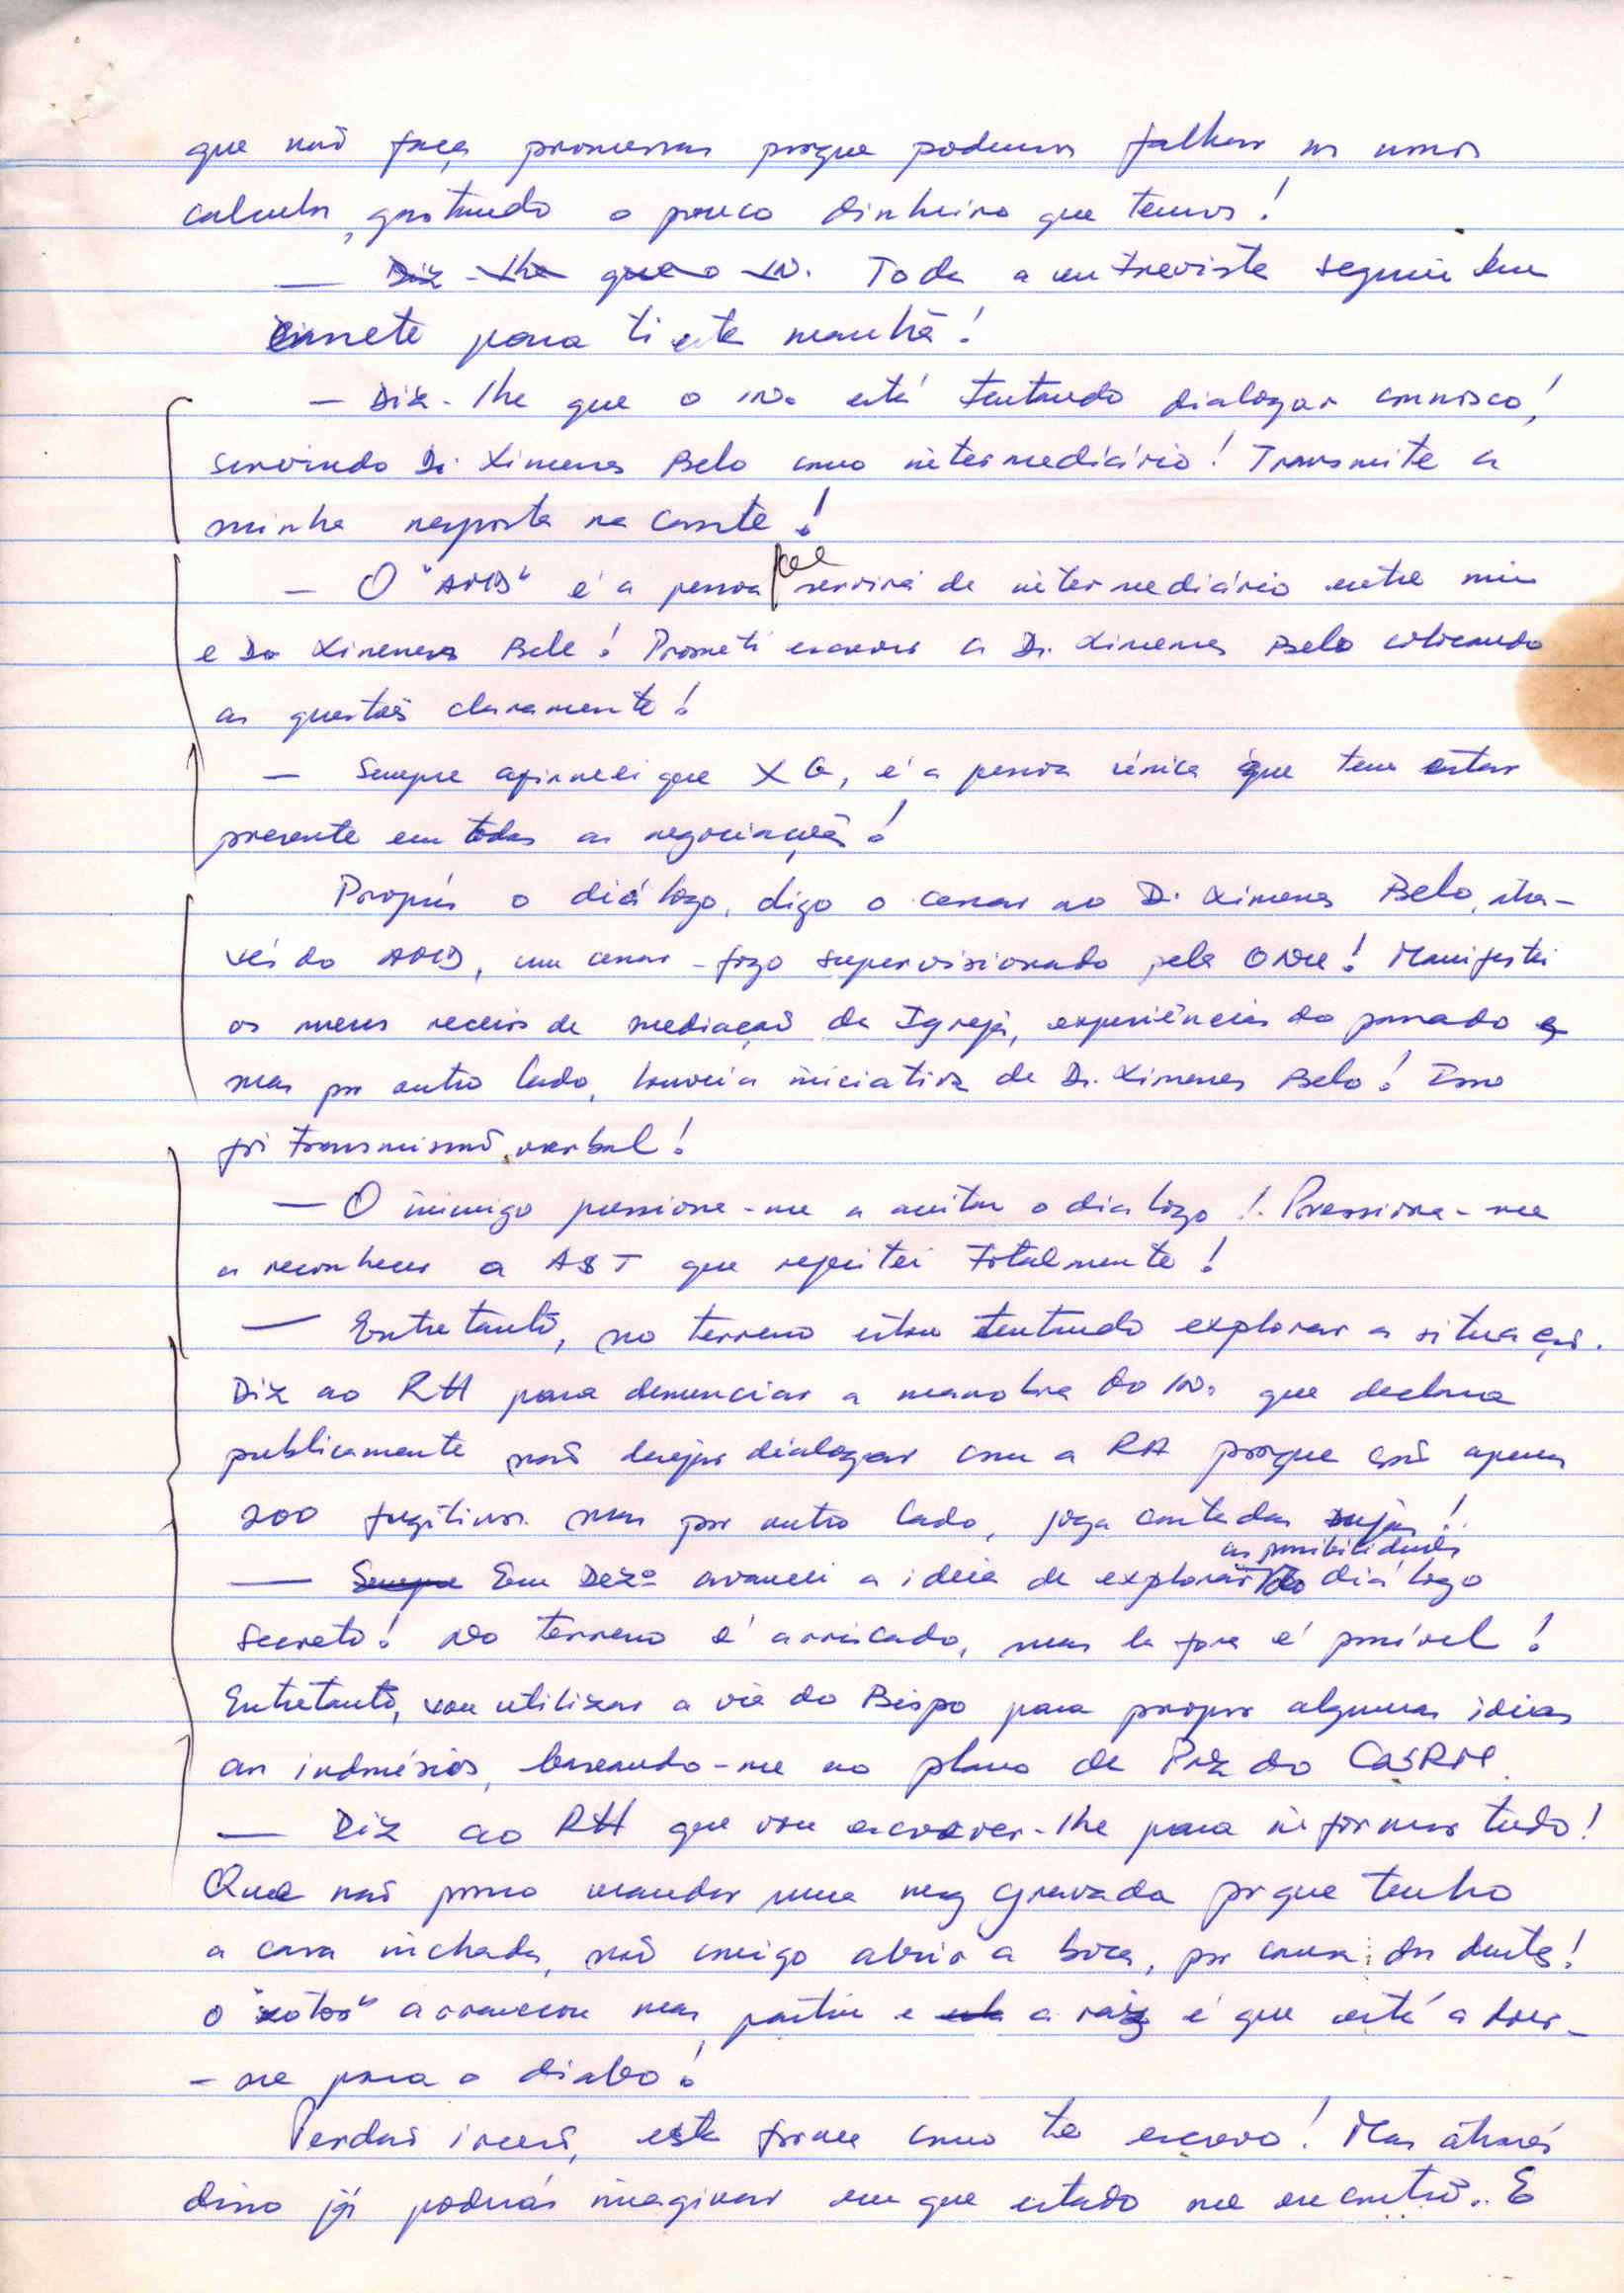 que não faça promessas porque podemos falhar os nossos
calculos, gastando o pouco dinheiro que temos!
— Diz-lhe que o in. Toda a entrevista seguiu em
cassete para ti esta manhã!
— Diz-lhe que o in. está tentando dialogar connosco,
servindo D. Ximenes Belo como intermediário! Transmite a
minha resposta na cassete!
— O "AMB" é a pessoa que servirá de intermediário entre mim
e D. Ximenes Belo! Prometi escrever a D. Ximenes Belo colocando
as questões claramente!
— Sempre afirmei que XG, é a pessoa única que tem estar
presente em todas as negociações!
Propús o diálogo, digo o cessar ao D. Ximenes Belo, atra-
vés do AMB, um cessar-fogo supervisionado pela ONU! Manifestei
os meus receios de mediação da Igreja, experiências do passado e
mas por outro lado, louvei a iniciativa de D. Ximenes Belo! Isso
foi transmissão verbal!
— O inimigo pressiona-me a aceitar o dialogo! Pressiona-me
a reconhecer a AST que rejeitei totalmente!
— Entretanto, no terreno estou tentando explorar a situação.
Diz ao RH para denunciar a manobra do in. que declara
publicamente não desejar dialogar com a RA porque são apenas
200 fugitivos mas por outro lado, joga cartadas sujas!
as possibilidades
— Sempre Em Dezº avancei a ideia de explorar do diálogo
secreto! No terreno é arriscado, mas la fora é possível!
Entretanto, vou utilizar a via do Bispo para propor algumas ideias
aos indonésios, baseando-me ao plano de Paz do CNRM.
— Diz ao RH que vou escrever-lhe para informar tudo!
Que não posso mandar uma msg gravada porque tenho
a cara inchada, não consigo abrir a boca, por causa dos dentes!
o "" arrancou mas partiu e a raiz é que está a doer-
-me para o diabo!
Perdão irmão, esta forma como te escrevo! Mas através
disso já poderás imaginar em que estado me encontro.. E